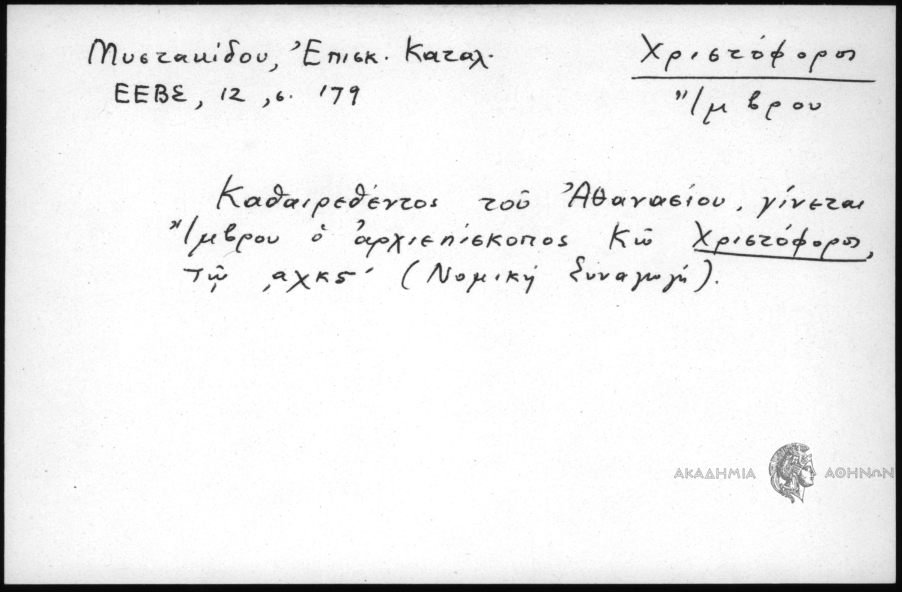 Μυστακίδου, Ἐπισκ. Καταλ.
ΕΕΒΣ, 12, σ. 179
Χριστόφορος
Ἴμβρου
Καθαιρεθέντος τοῦ Ἀθανασίου, γίνεται
Ἴμβρου ὁ ἀρχιεπίσκοπος Κῶ Χριστόφορος,
τῷ ͵αχκϛʹ (Νομικὴ Συναγωγή).
ΑΚΑΔΗΜΙΑ ΑΘΗΝΩΝ